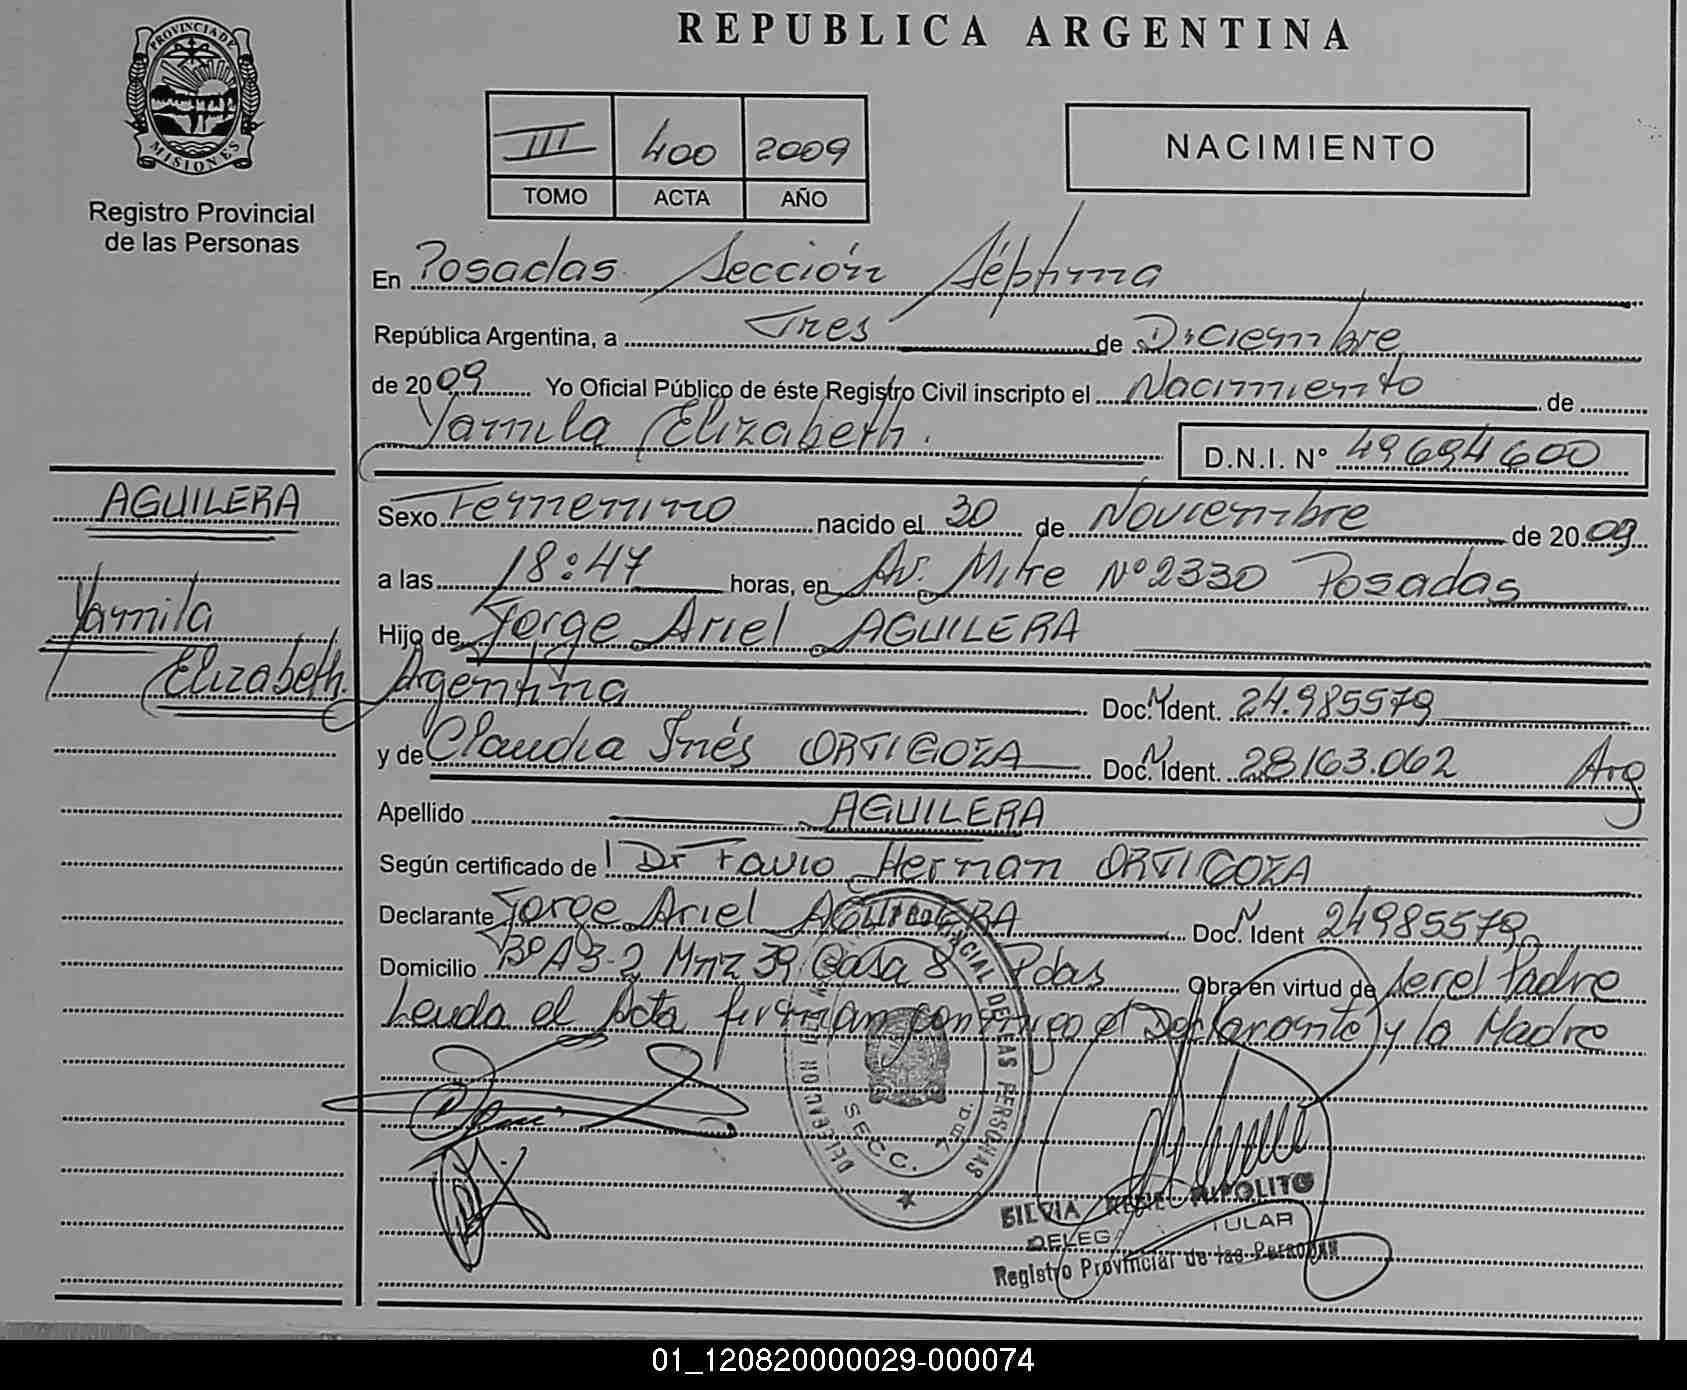 REPUBLICA ARGENTINA
PROVINCIA DE
MISIONES
Registro Provincial
de las Personas
III 400 2009
TOMO ACTA AÑO
NACIMIENTO
En Posadas Sección Séptima
República Argentina, a Tres de Diciembre
de 2009 Yo Oficial Público de éste Registro Civil inscripto el Nacimiento de
Yamila Elizabeth. D.N.I. N° 49694600
AGUILERA
Yamila
Elizabeth.
Sexo Femenino nacido el 30 de Noviembre de 2009
a las 18:47 horas, en Av. Mitre Nº 2330 Posadas
Hijo de Jorge Ariel AGUILERA
Argentina Doc. N Ident. 24.985579
y de Claudia Inés ORTIGOZA Doc. N Ident. 28163.062 Arg
Apellido AGUILERA
Según certificado de Dr Favio Hernan ORTIGOZA
Declarante Jorge Ariel AGUILERA Doc. N Ident 24985579
Domicilio Bº A3-2 Mnz 39 Casa 8 Pdas Obra en virtud de ser el Padre
Leida el Acta firman conmigo el Declarante y la Madre
SECC.
DE LAS PERSONAS
SILVIA HIPOLITO
Registro Provincial de las Personas
01_120820000029-000074